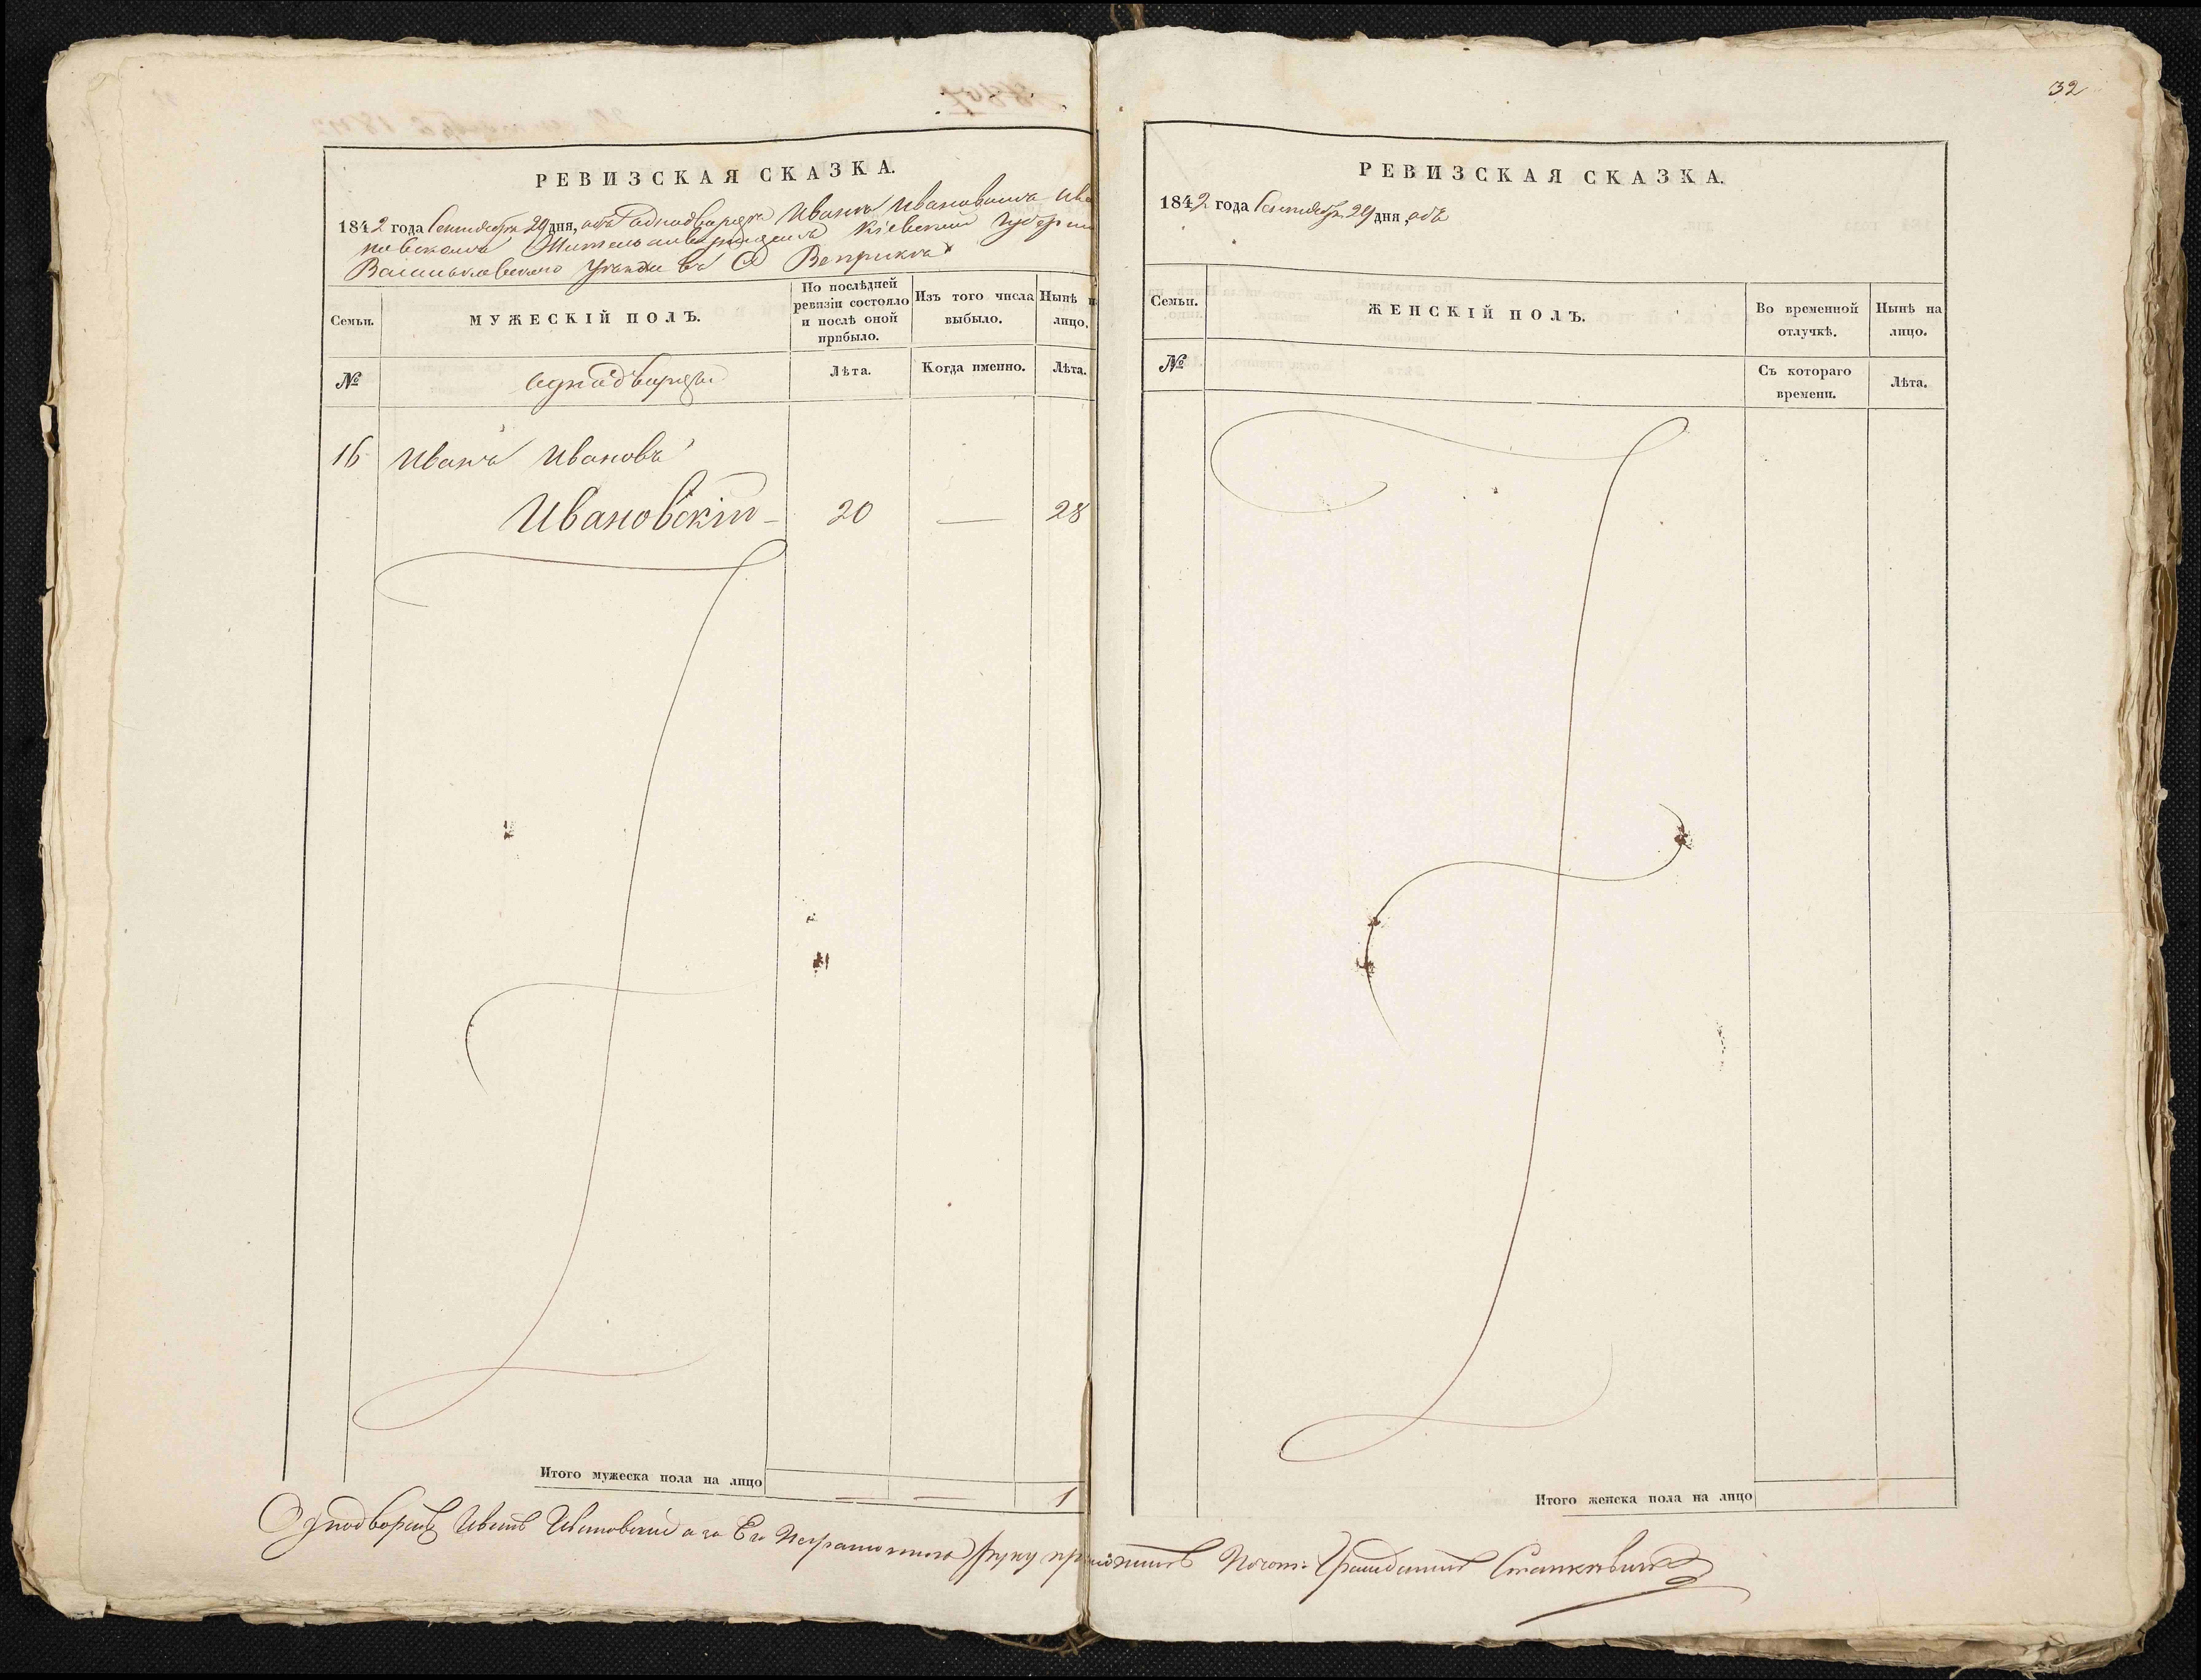 32
РЕВИЗСКАЯ СКАЗКА.
1842 года Сентября 29 дня, объ однодворце Иванъ Ивановичъ Ива
новскомъ Кіевской Губерніи
Васильковскаго Уезда въ С Веприкъ
Семьи.
МУЖЕСКІЙ ПОЛЪ.
По послѣдней ревизіи состояло и послѣ оной прибыло.
Изъ того числа выбыло.
Нынѣ н лицо.
№
однодворцы
Лѣта.
Когда именно.
Лѣта.
16 Иванъ Ивановъ
Ивановскій – 20 — 28
Итого мужеска пола на лицо — — 1
РЕВИЗСКАЯ СКАЗКА.
1842 года Сентября 29 дня, объ
Семьи.
ЖЕНСКІЙ ПОЛЪ.
Во временной отлучкѣ.
Нынѣ на лицо.
№
Съ котораго времени.
Лѣта.
Итого женска пола на лицо
Однодворецъ Иванъ Ивановскій а за Его Неграмотного руку приложилъ Почот: Гражданинъ Станкевичъ